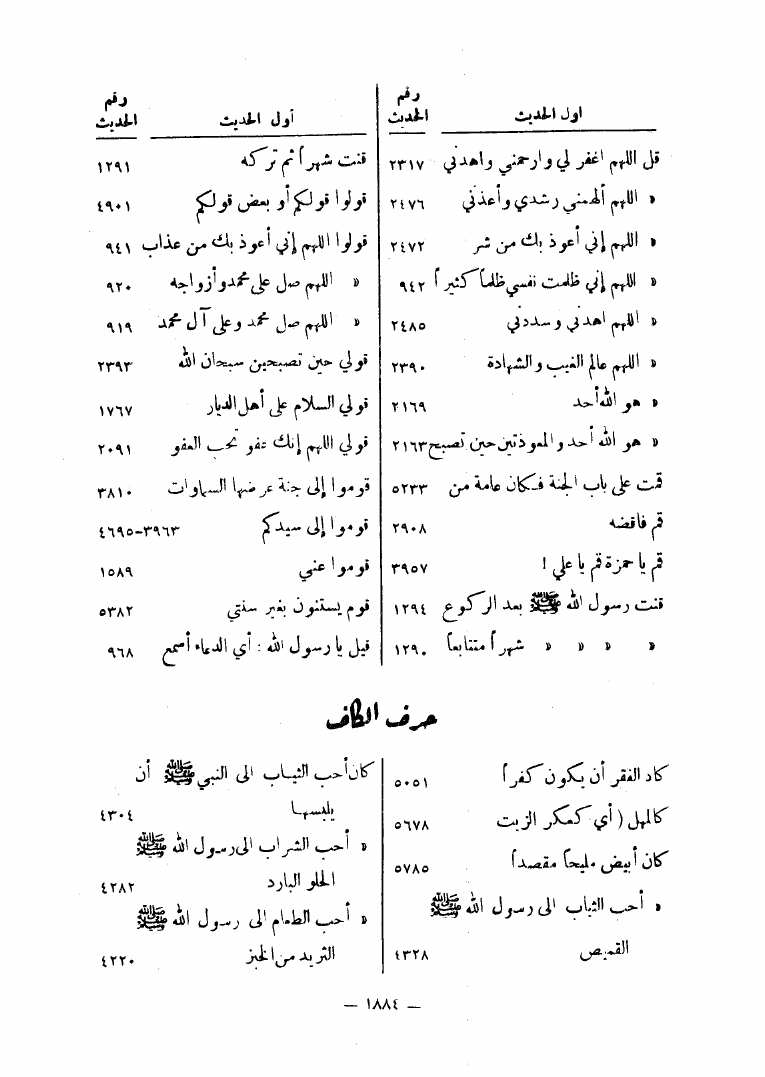 اول الحديث رقم الحديث
قل اللهم اغفر لي وارحمني واهدني ٢٣١٧
» اللهم ألهمني رشدي وأعذني ٢٤٧٦
» اللهم إني أعوذ بك من شر ٢٤٧٢
» اللهم إني ظلمت نفسي ظلماً كثيراً ٩٤٢
» اللهم اهدني وسددني ٢٤٨٥
» اللهم عالم الغيب والشهادة ٢٣٩٠
» هو الله أحد ٢١٦٩
» هو الله أحد والمعوذتين حين تصبح ٢١٦٣
قمت على باب الجنة فكان عامة من ٥٢٣٣
قم فاقضه ٢٩٠٨
قم يا حمزة قم يا علي ! ٣٩٥٧
قنت رسول الله ﷺ بعد الركوع ١٢٩٤
» » » » شهراً متتابعاً ١٢٩٠
أول الحديث رقم الحديث
قنت شهراً ثم تركه ١٢٩١
قولوا قولكم أو بعض قولكم ٤٩٠١
قولوا اللهم إني أعوذ بك من عذاب ٩٤١
» اللهم صل على محمد وأزواجه ٩٢٠
» اللهم صل محمد وعلى آل محمد ٩١٩
قولي حين تصبحين سبحان الله ٢٣٩٣
قولي السلام على أهل الديار ١٧٦٧
قولي اللهم إنك عفو تحب العفو ٢٠٩١
قوموا إلى جنة عرضها السماوات ٣٨١٠
قوموا إلى سيدكم ٣٩٦٣-٤٦٩٥
قوموا عني ١٥٨٩
قوم يستنون بغير سنتي ٥٣٨٢
قيل يا رسول الله : أي الدعاء أسمع ٩٦٨
حرف الكاف
كاد الفقر أن يكون كفراً ٥٠٥١
كالمهل ( أي كعكر الزيت ٥٦٧٨
كان أبيض مليحاً مقصداً ٥٧٨٥
» أحب الثياب الى رسول الله ﷺ
القميص ٤٣٢٨
كان أحب الثياب الى النبي ﷺ أن
يلبسها ٤٣٠٤
» أحب الشراب الى رسول الله ﷺ
الحلو البارد ٤٢٨٢
» أحب الطعام الى رسول الله ﷺ
الثريد من الخبز ٤٢٢٠
— ١٨٨٤ —